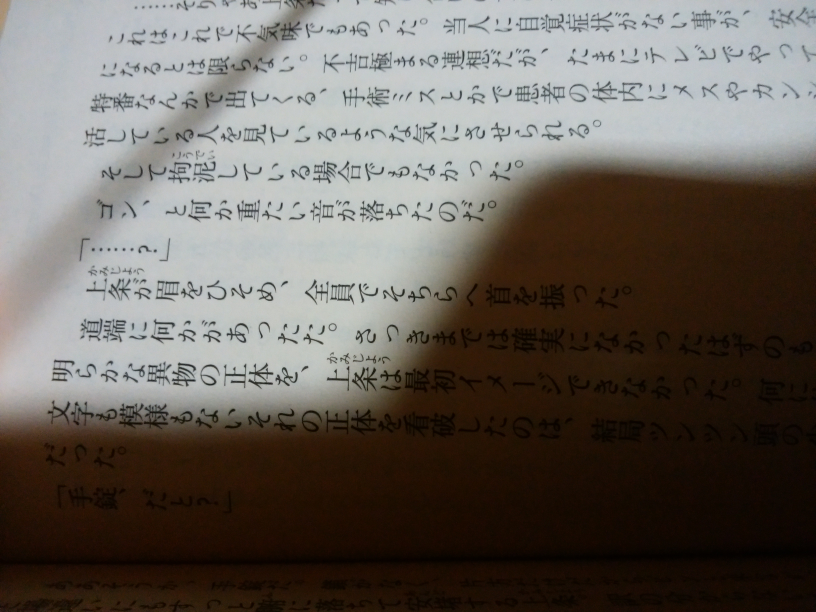 これはこれで不気味でもあった。当人に自覚症状がない事が、安全
になるとは限らない。不吉極まる連想だが、たまにテレビでやって
特番なんかで出てくる、手術ミスとかで患者の体内にメスやカンシ
活している人を見ているような気にさせられる。
そして拘泥している場合でもなかった。
ゴン、と何か重たい音が落ちたのだ。
「……?」
上条が眉をひそめ、全員でそちらへ首を振った。
道端に何かがあったた。さっきまでは確実になかったはずのも
明らかな異物の正体を、上条は最初イメージできなかった。何に
文字も模様もないそれの正体を看破したのは、結局ツンツン頭の
だった。
「手錠、だと?」